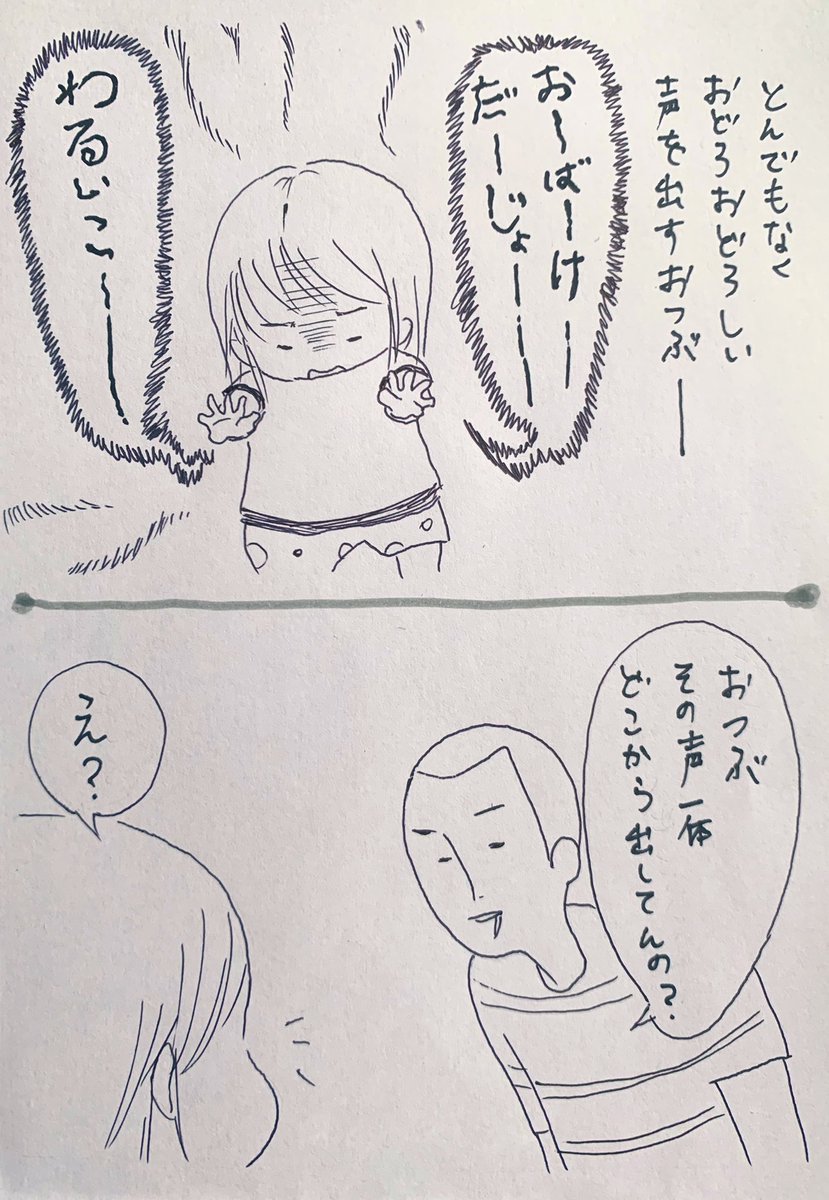 とんでもなく
おどろおどろしい
声を出すおつぶ――
お〜ば〜け〜
だ〜じょ〜〜
わるいこ〜――
おつぶ
その声一体
どこから出してんの？
え？